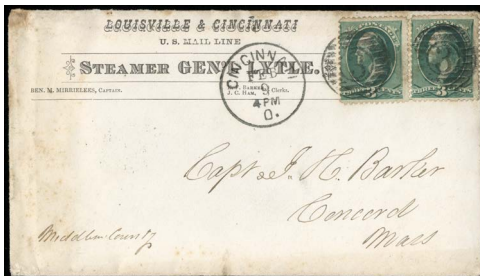 LOUISVILLE & CINCINNATI
U. S. MAIL LINE
STEAMER GEN'L LYTLE.
BEN. M. MIRRIELEES, CAPTAIN.
BARKER
J. C. HAM, Clerks.
CINCINNATI
FEB
9
4 PM
O.
3 CENTS
3 CENTS
Capt. J. H. Barker
Concord
Mass
Middlesex County